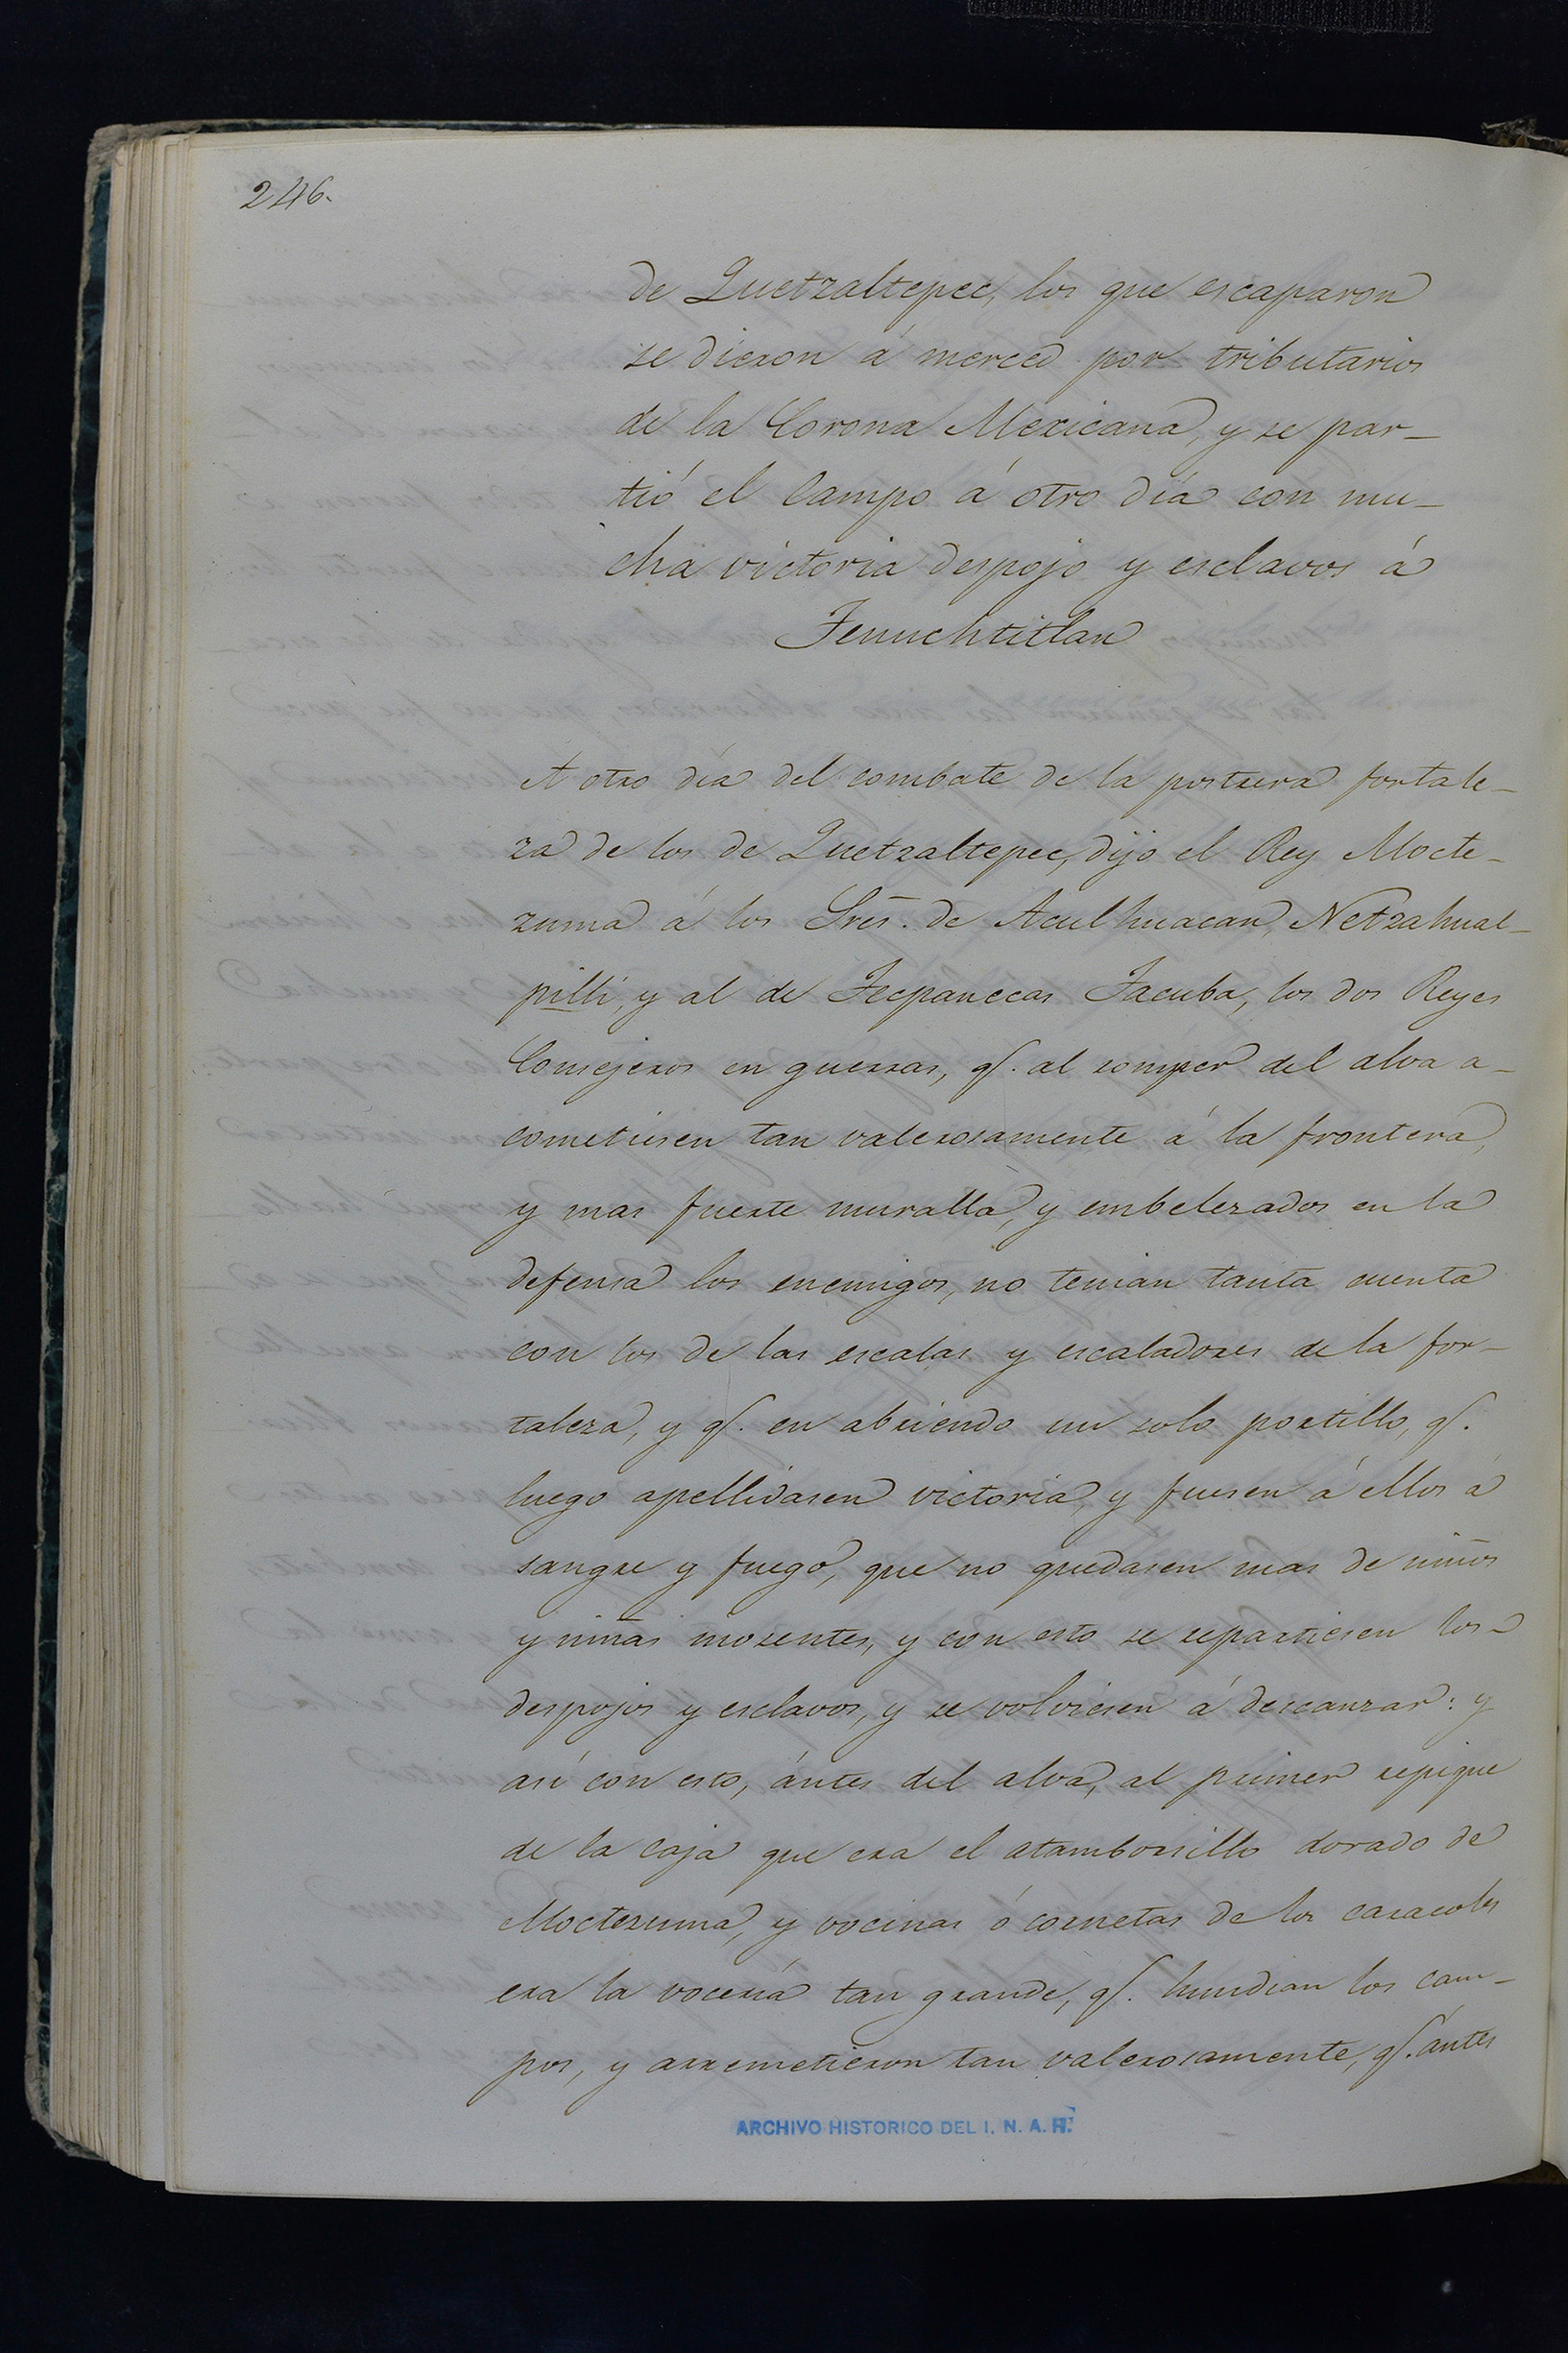 246.
de Quetzaltepec, los que escaparon
se dieron á merced por tributarios
de la Corona Mexicana, y se par-
tió el Campo á otro dia con mu-
cha victoria despojo y esclavos á
Tenuchtitlan
A otro dia del combate de la postrera fortale-
za de los de Quetzaltepec, dijo el Rey Mocte-
zuma á los Sres. de Aculhuacan, Netzahual-
pilli, y al de Tecpanecas Tacuba, los dos Reyes
Consejeros en guerras, q. al romper del alva a-
cometiesen tan valerosamente á la frontera,
y mas fuerte muralla, y embelezados en la
defensa los enemigos, no tenian tanta cuenta
con los de las escalas y escaladores de la for-
taleza, y q. en abriendo un solo portillo, q.
luego apellidasen victoria, y fuesen á ellos á
sangre y fuego, que no quedasen mas de niños
y niñas inosentes, y con esto se repartiesen los
despojos y esclavos, y se volviesen á descanzar: y
asi con esto, ántes del alva, al primer repique
de la caja que era el atamborsillo dorado de
Moctezuma, y vocinas ó cornetas de los caracoles
era la vocería tan grande, q. hundian los cam-
pos, y arremetieron tan valerosamente, q. ántes
ARCHIVO HISTORICO DEL I. N. A. H.